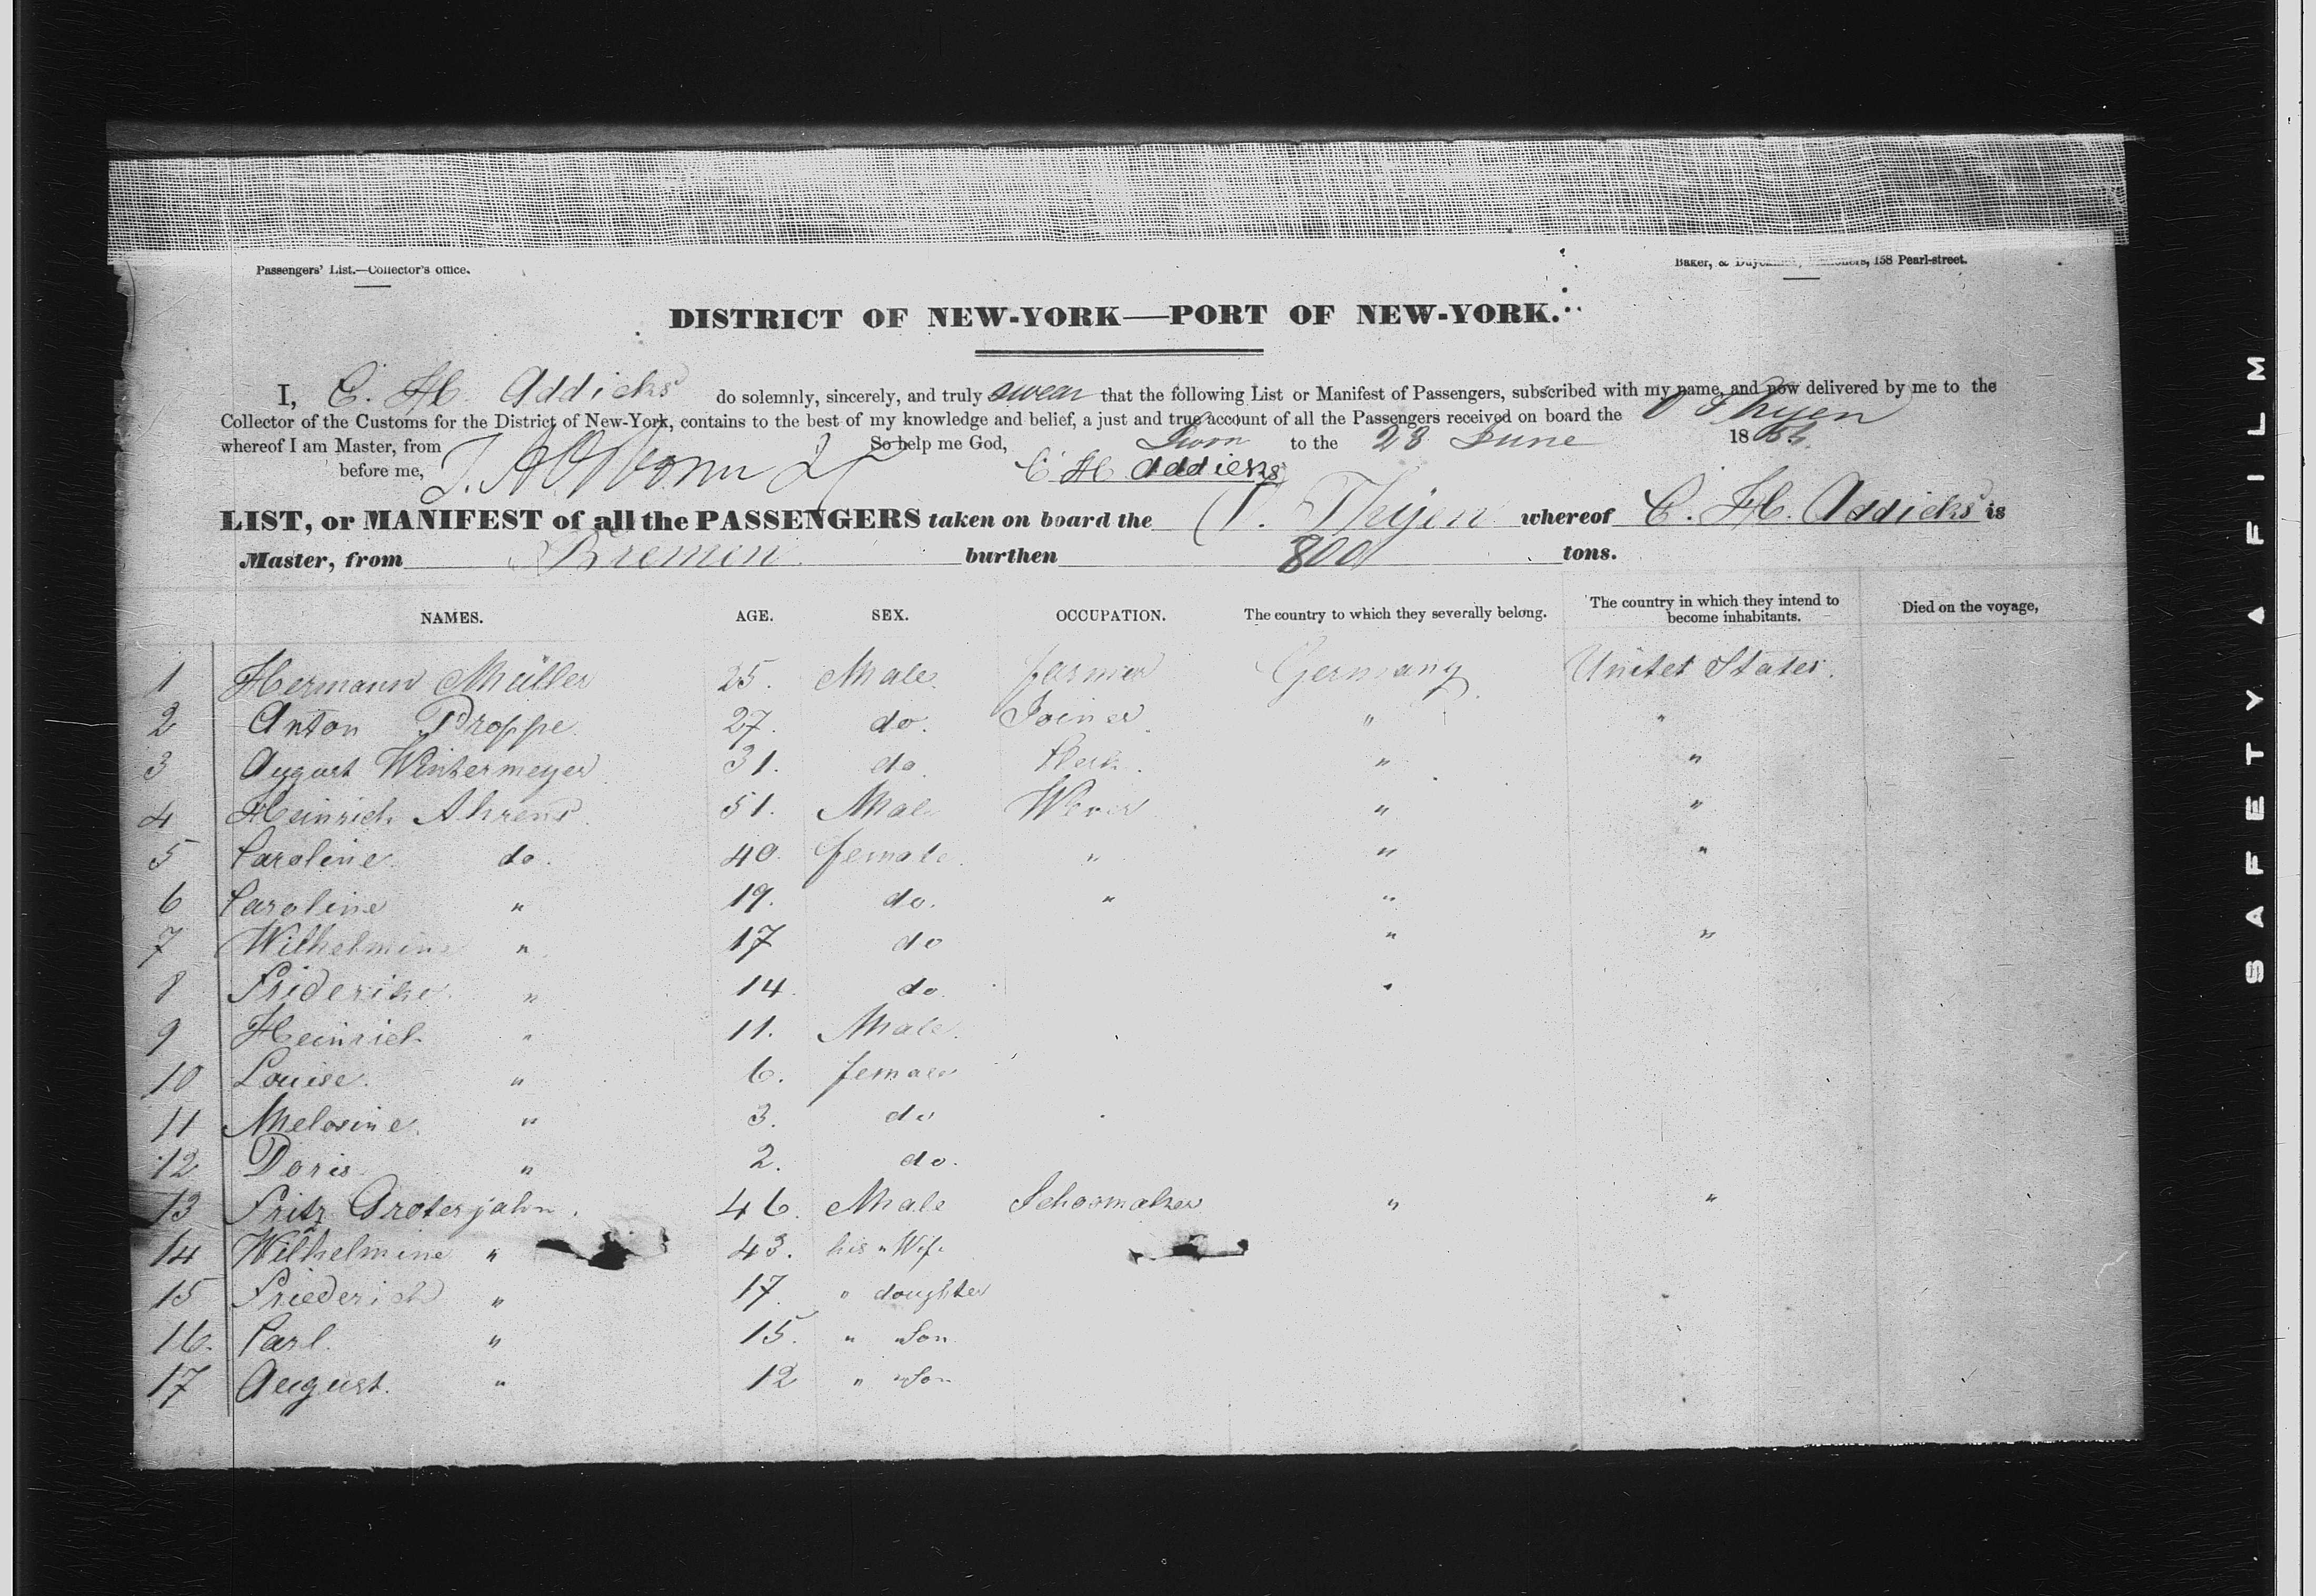 Passengers' List.—Collector's office.
Baker, & Duyckinck, Stationers, 158 Pearl-street.
DISTRICT OF NEW-YORK—PORT OF NEW-YORK.
I, C. H. Addicks do solemnly, sincerely, and truly swear that the following List or Manifest of Passengers, subscribed with my name, and now delivered by me to the
Collector of the Customs for the District of New-York, contains to the best of my knowledge and belief, a just and true account of all the Passengers received on board the Thyen
whereof I am Master, from So help me God, Sworn to the 28 June 18
before me, C H Addicks
LIST, or MANIFEST of all the PASSENGERS taken on board the Thyen whereof C. H. Addicks is
Master, from Bremen burthen 800 tons.
NAMES. AGE. SEX. OCCUPATION. The country to which they severally belong. The country in which they intend to become inhabitants. Died on the voyage,
1 Hermann Müller 25. Male. farmer Germany Unitet States.
2 Anton Droppe 27. do. Joiner " "
3 August Wintermeyer 31. do. Clerk. " "
4 Heinrich Ahrens 51. Male Wever " "
5 Caroline do. 40. female. " " "
6 Caroline " 19. do. " "
7 Wilhelmine " 17 do " "
8 Friderike. " 14. do. "
9 Heinrich " 11. Male.
10 Louise. " 6. female
11 Melosine. " 3. do
12 Doris " 2. do.
13 Fritz Grotesjahn. 46. Male Schoomaker " "
14 Wilhelmine " 43. his " Wife
15 Friederich " 17. " doughter
16. Carl. " 15. " Son
17 August. " 12 " Son
SAFETY A FILM